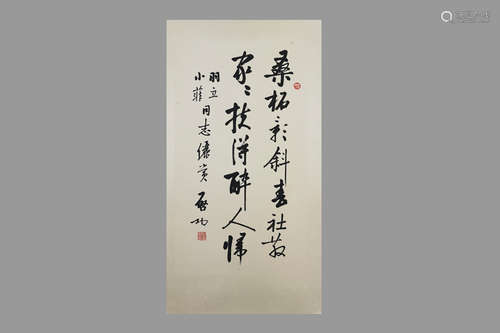 桑柘影斜春社散
家〻扶得醉人归
羽立
小菲同志傋赏 启功